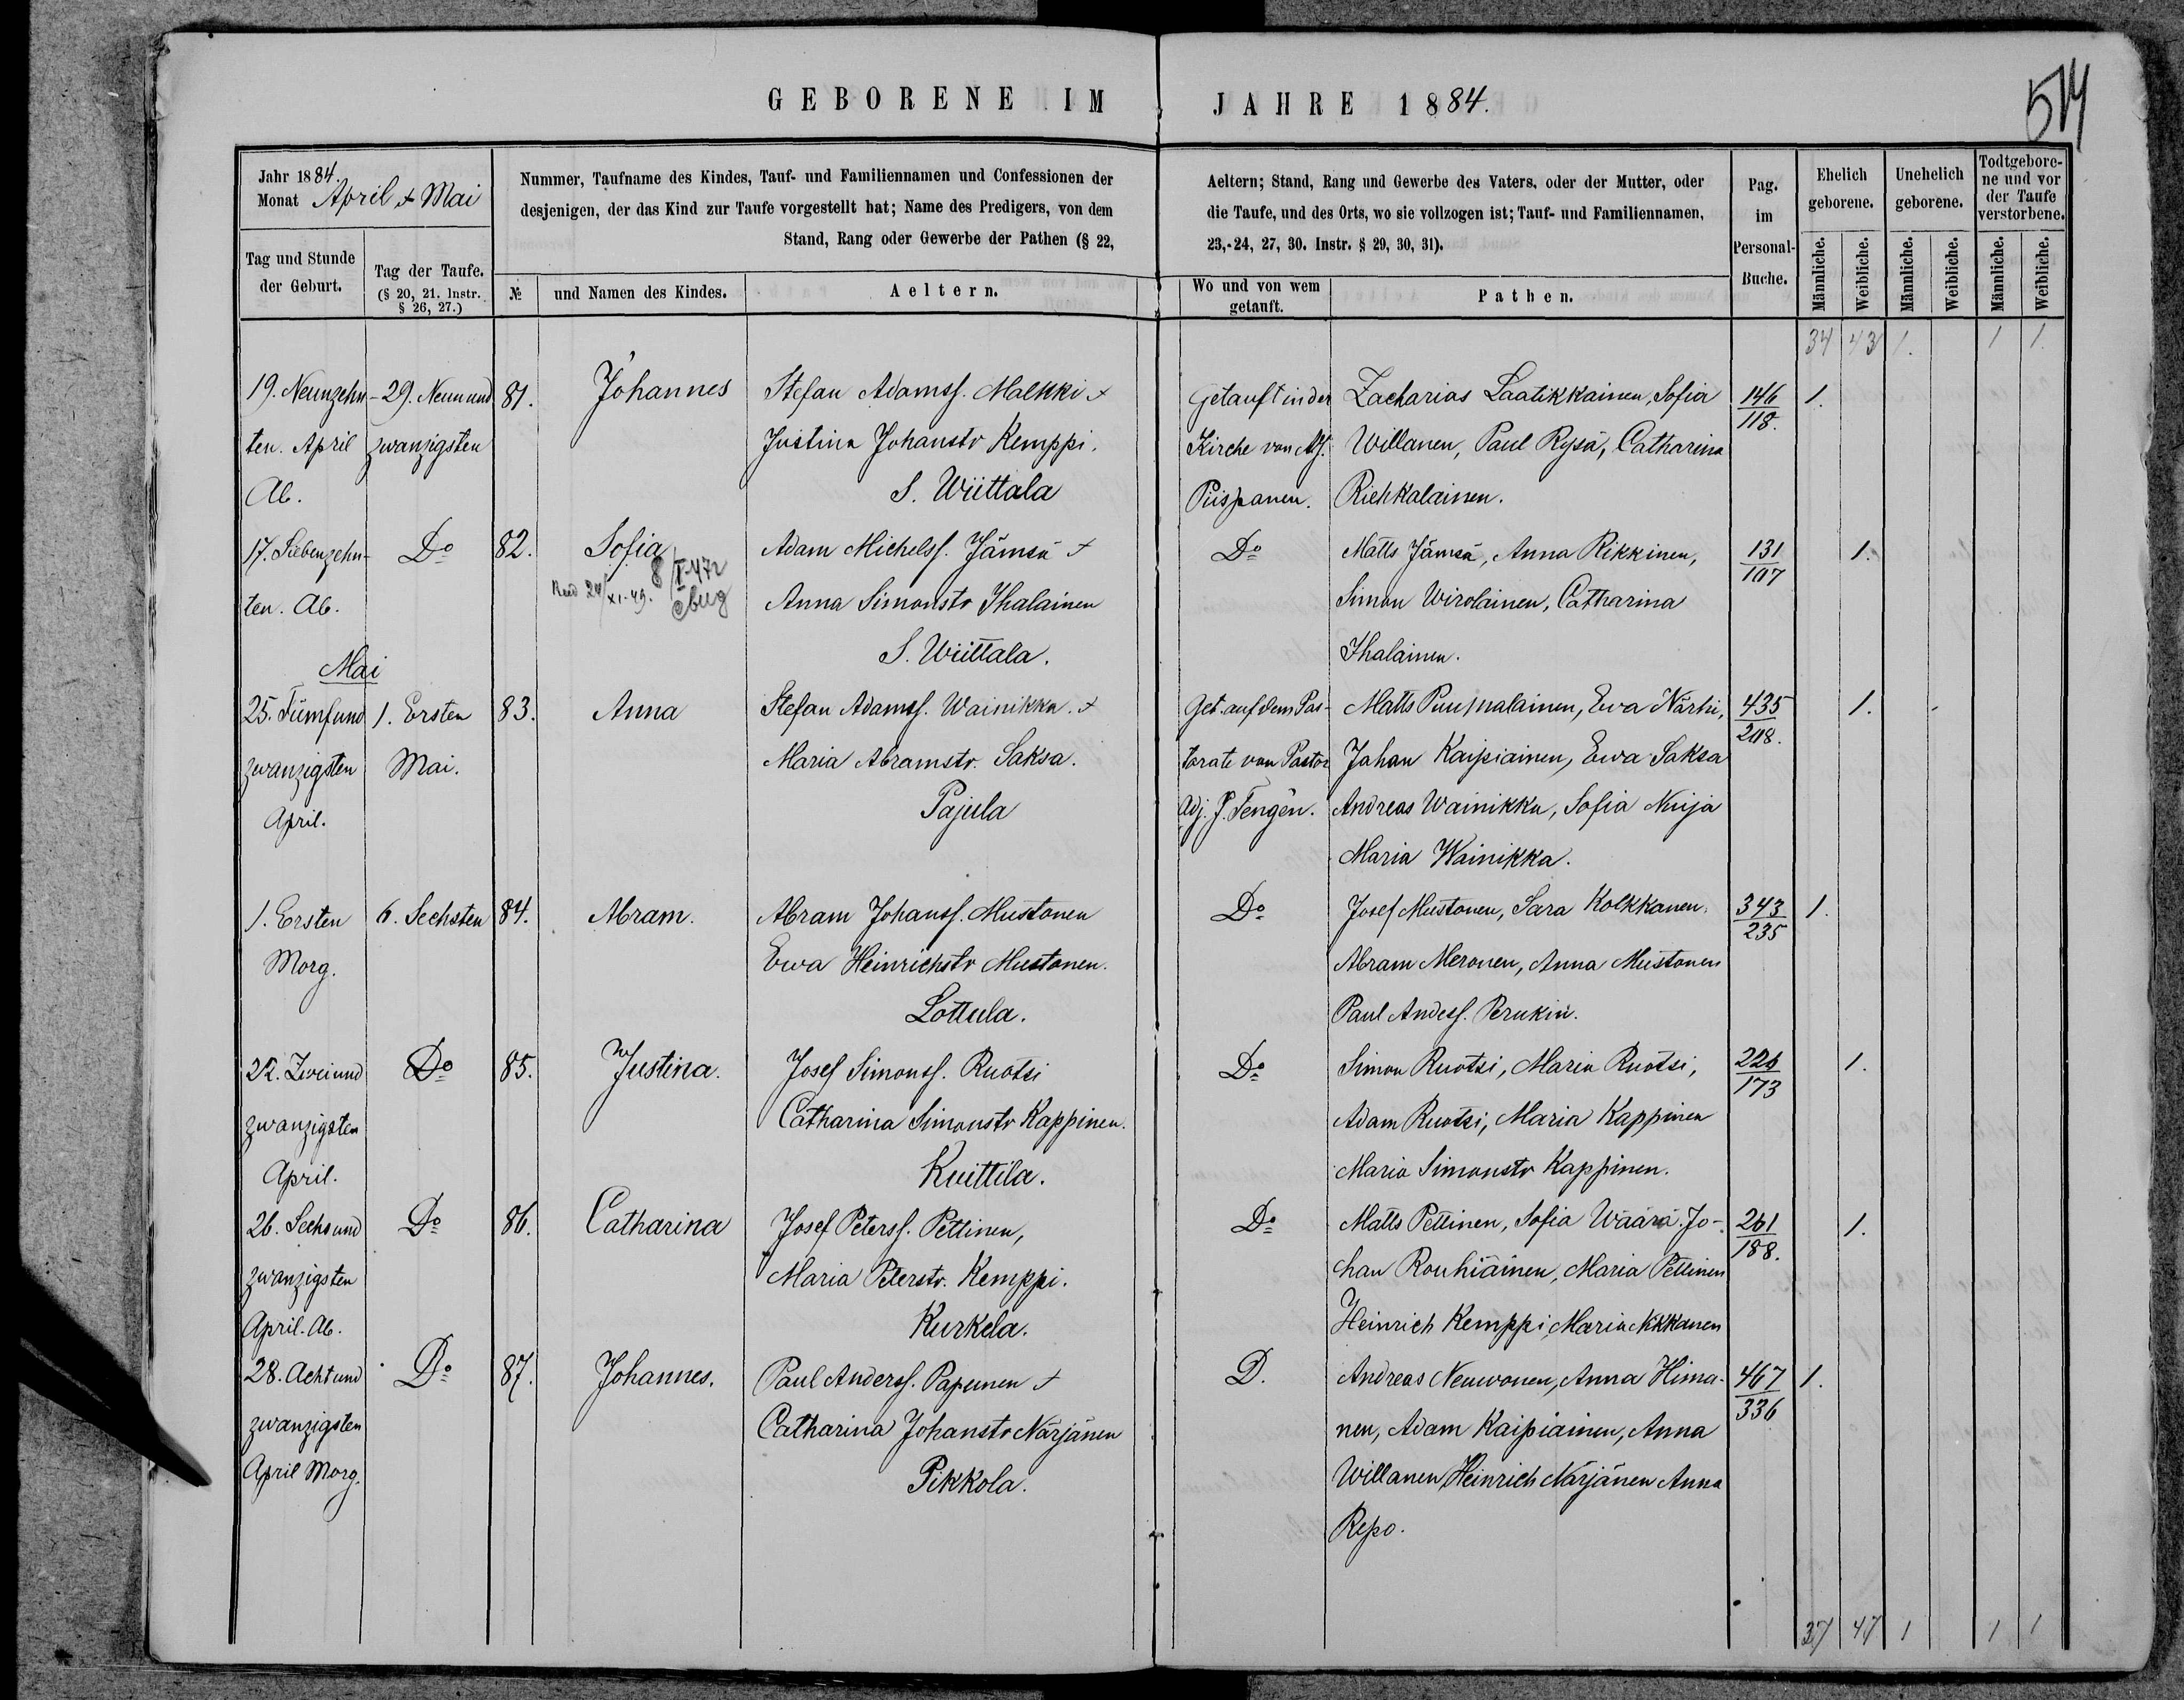 GEBORENE IM JAHRE 1884.
514
Jahr 1884.
Monat April & Mai
Tag und Stunde der Geburt.
Tag der Taufe. (§ 20, 21. Instr. § 26, 27.)
Nummer, Taufname des Kindes, Tauf- und Familiennamen und Confessionen der
desjenigen, der das Kind zur Taufe vorgestellt hat; Name des Predigers, von dem
Stand, Rang oder Gewerbe der Pathen (§ 22,
№
und Namen des Kindes.
Aeltern.
Aeltern; Stand, Rang und Gewerbe des Vaters, oder der Mutter, oder
die Taufe, und des Orts, wo sie vollzogen ist; Tauf- und Familiennamen,
23, 24, 27, 30. Instr. § 29, 30, 31).
Wo und von wem getauft.
Pathen.
Pag. im Personal-Buche.
Ehelich geborene.
Unehelich geborene.
Todtgeborene und vor der Taufe verstorbene.
Männliche. Weibliche. Männliche. Weibliche. Männliche. Weibliche.
34 43 1. 1 1.
19. Neunzehn- 29. Neunund 81. Johannes Stefan Adamss. Malkki & Getauft in der Zacharias Laatikkainen, Sofia 146 1.
ten. April zwanzigsten Justina Johanstr Kemppi. Kirche von Adj. Willanen, Paul Rysä, Catharina 118.
Ab. S. Wiittala Piispanen. Riehkalainen.
17. Siebenzehn- Do 82. Sofia Adam Michelss. Jämsä & Do Matts Jämsä, Anna Rikkinen, 131 1.
ten. Ab. Anna Simonstr Ihalainen Simon Wirolainen, Catharina 107
S. Wiittala. Ihalainen.
Mai
25. Fümfund 1. Ersten 83. Anna Stefan Adamss. Wainikka & Get. auf dem Pas- Matts Puumalainen, Ewa Närhi, 435 1.
zwanzigsten Mai. Maria Abramstr. Saksa. torate von Pastor Johan Kaipiainen, Ewa Saksa
April. Pajula Adj. J. Tengén. Andreas Wainikka, Sofia Nuija
Maria Wainikka.
1. Ersten 6. Sechsten 84. Abram. Abram Johanss. Mustonen Do Josef Mustonen, Sara Kolkkanen. 343 1.
Morg. Ewa Heinrichstr Mustonen. Abram Meronen, Anna Mustonen 235
Lottula. Paul Andess.
22. Zweiund Do 85. Justina. Josef Simonss. Ruotsi Do Simon Ruotsi, Maria Ruotsi, 226 1.
zwanzigsten Catharina Simonstr Kappinen. Adam Ruotsi, Maria Kappinen 173
April. Kuittila. Maria Simonstr Kappinen.
26. Sechsund Do 86. Catharina Josef Peterss. Pettinen, Do Matts Pettinen, Sofia Wäärä. Jo- 261 1.
zwanzigsten Maria Peterstr. Kemppi. han Rouhiainen, Maria Pettinen 188.
April. Ab. Kurkela. Heinrich Kemppi, Maria Ikkanen
28. Achtund Do 87. Johannes. Paul Anderss. Papunen & D. Andreas Neuwonen, Anna Hima- 467 1.
zwanzigsten Catharina Johanstr Närjänen nen, Adam Kaipiainen, Anna 336
April Morg. Pikkola. Willanen, Heinrich Närjänen Anna
Repo.
37 47 1 1 1